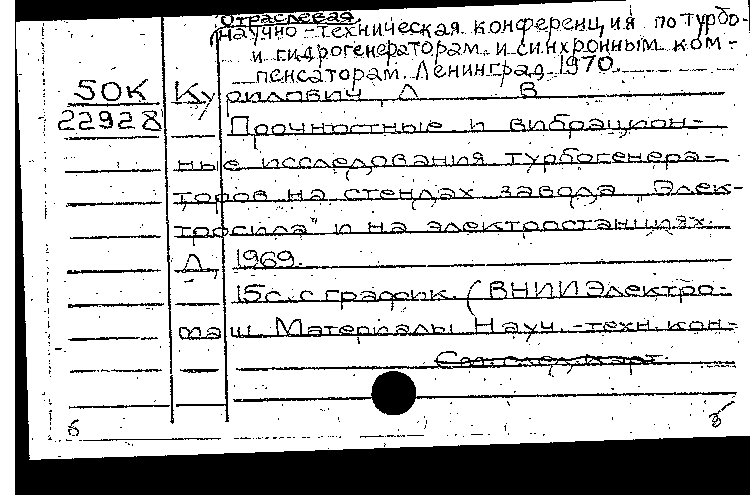 Отраслевая
научно-техническая конференция по турбо-
и гидрогенераторам и синхронным ком-
пенсаторам. Ленинград. 1970.
50К Курилович, Л В
22928 Прочностные и вибрацион-
ные исследования турбогенера-
торов на стендах завода „Элек-
тросила" и на электростанциях.
Л., 1969.
15с. с график. (ВНИИЭлектро-
маш. Материалы Науч.-техн. кон-
б